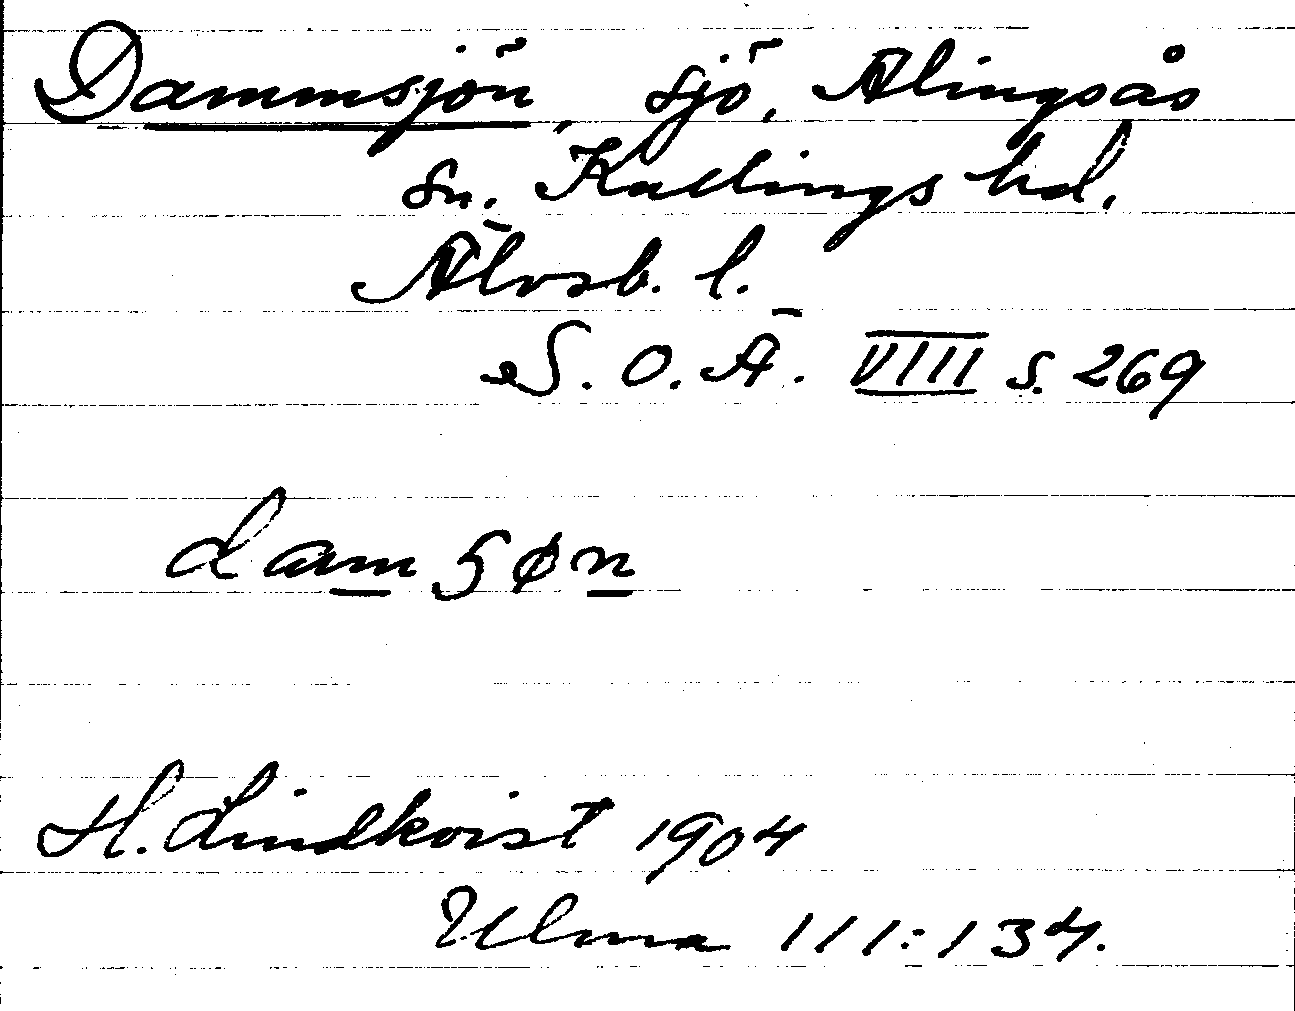 Dammsjön, sjö, Alingsås
sn. Kullings hd.
Älvsb. l.
S. O. Ä. VIII s. 269
damʃøn
H. Lindkvist 1904
Ulma 111:134.